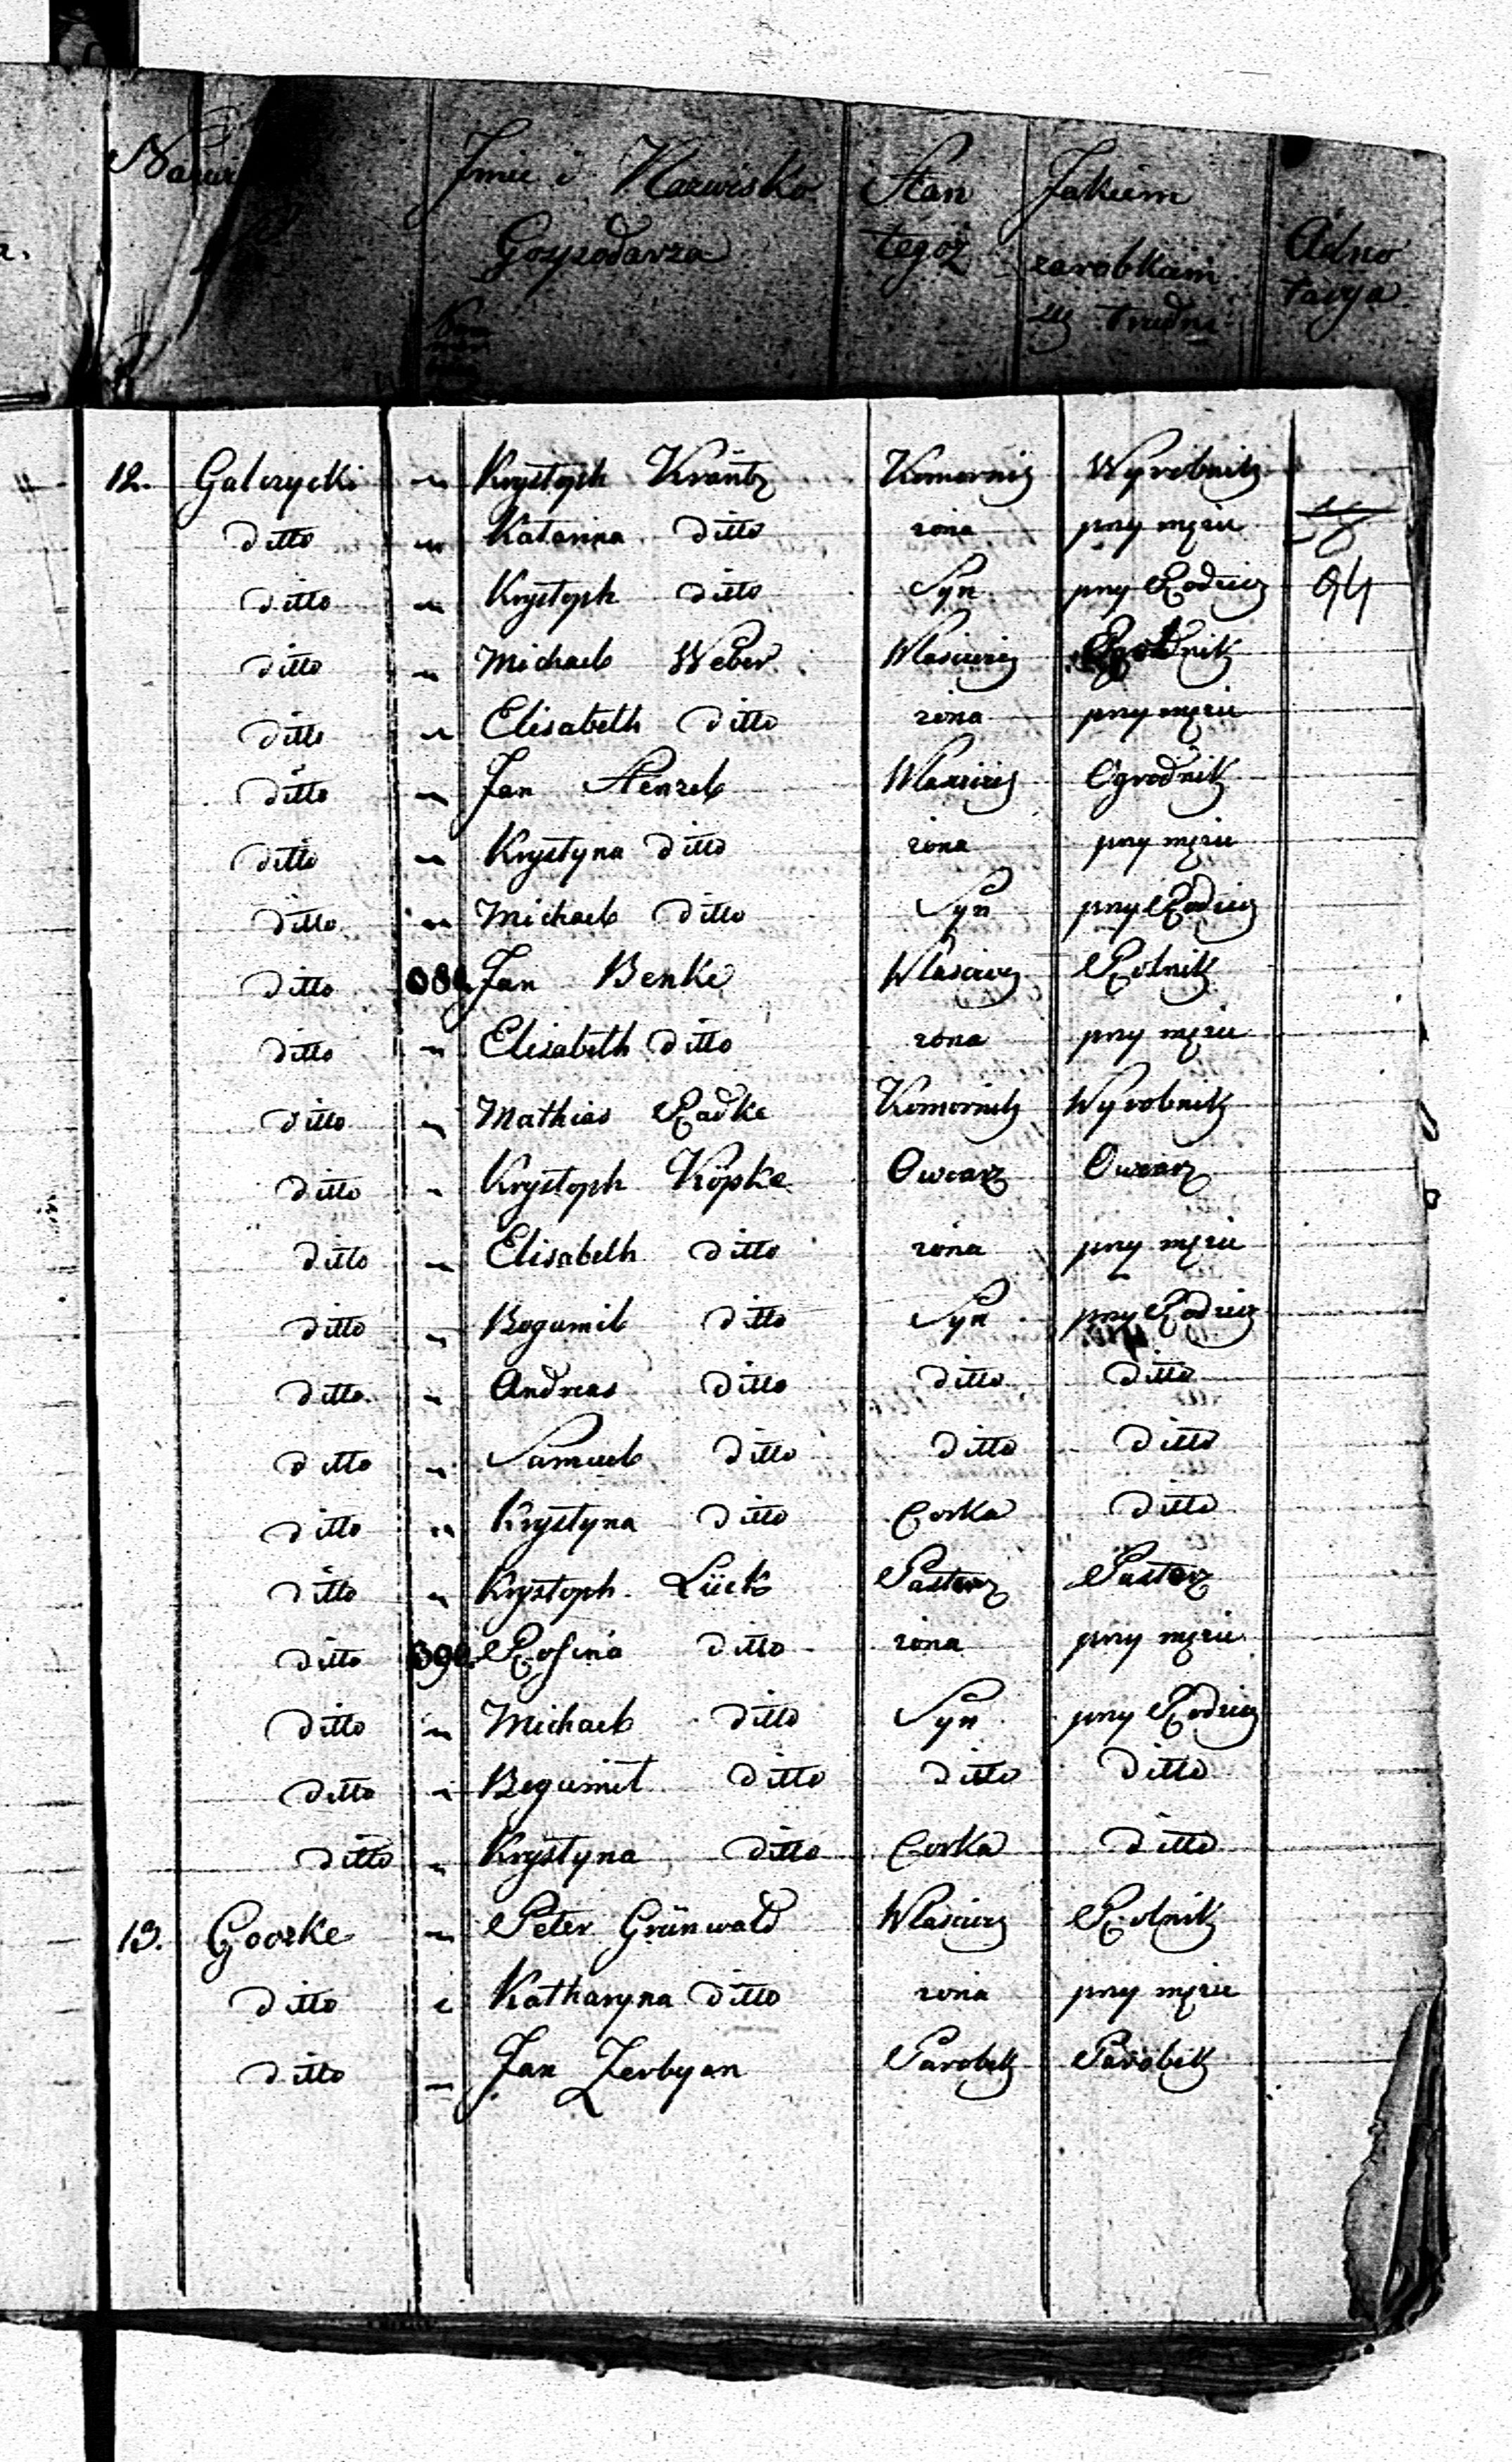 Imie i Nazwisko Stan Jakiem
Gospodarza tegoż zarobkiem Adno
się trudni tacya
12. Galczycki " Krystoph Kräntz Komornik Wyrobnik
ditto " Katarina ditto zona przy mężu
ditto " Krystoph ditto Syn przy Rodzicz 94
ditto " Michael Weber Wlasciciz Ogrodnik
ditto " Elisabeth ditto zona przy mężu
ditto " Jan Stenzel Wlasciciz Ogrodnik
ditto " Krystyna ditto zona przy mężu
ditto " Michael ditto Syn przy Rodzicz
ditto Jan Benke Wlasciciz Rolnik
ditto " Elisabeth ditto zona przy mężu
ditto " Mathias Radke Komornik Wyrobnik
ditto " Krystoph Köpke Owcarz Owcarz
ditto " Elisabeth ditto zona przy mężu
ditto " Bogumil ditto Syn przy Rodzicz
ditto " Andreas ditto ditto ditto
ditto " Samuel ditto ditto ditto
ditto " Krystyna ditto Corka ditto
ditto " Krystoph Lück Pasterz Pasterz
ditto Rosina ditto zona przy mężu
ditto " Michael ditto Syn przy Rodzicz
ditto " Bogumil ditto ditto ditto
ditto " Krystyna ditto Corka ditto
13. Goorke " Peter Grünwald Wlasciciz Rolnik
ditto " Katharyna ditto zona przy mężu
ditto " Jan Zerbyan Parobek Parobek